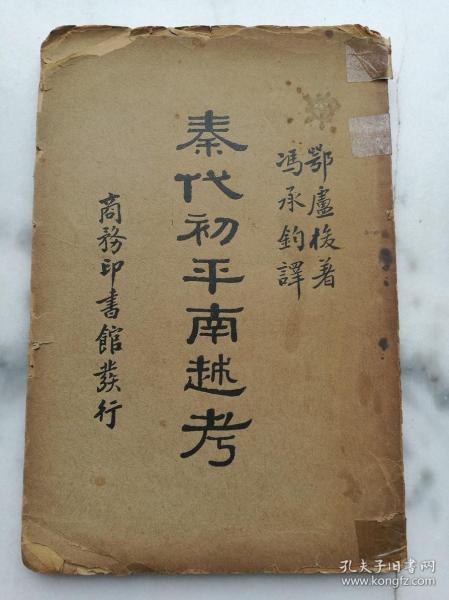 鄂盧梭著
馮承鈞譯
秦代初平南越考
商務印書館發行
孔夫子旧书网
www.kongfz.com